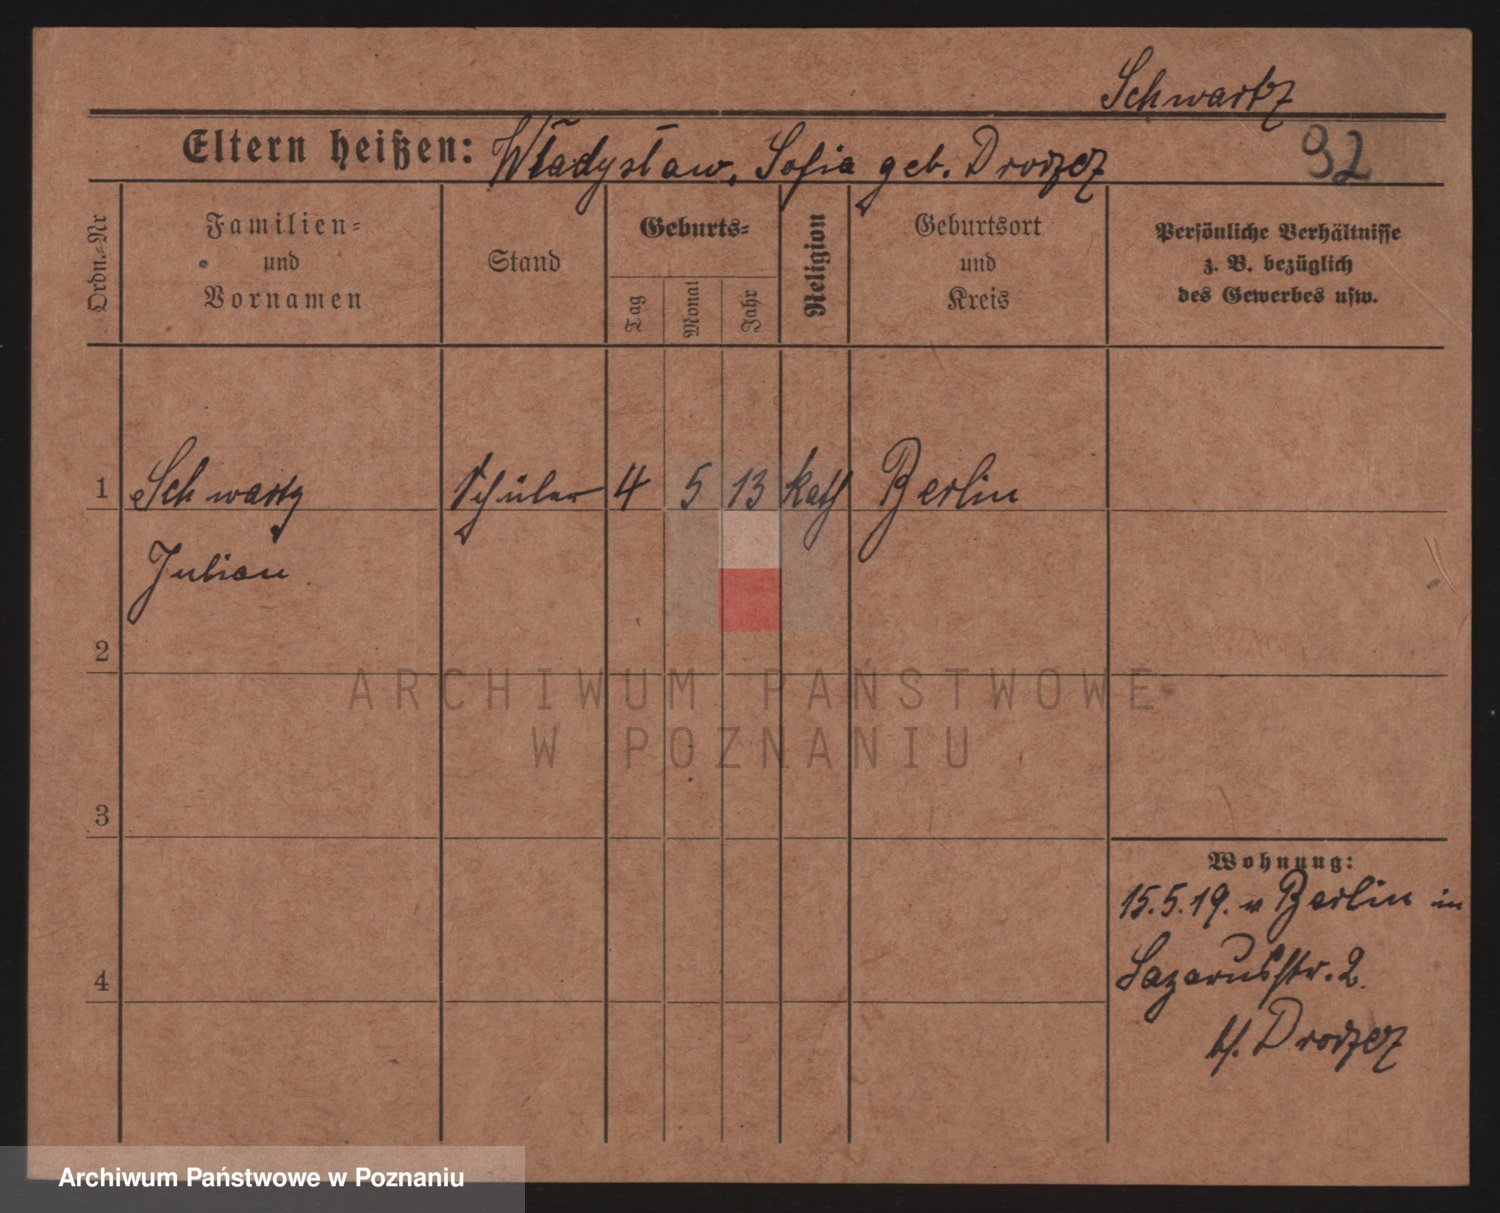 Schwartz
Eltern heißen: Władysław, Sofia geb. Drozez
92
Ordn.-Nr
Familien-
und
Vornamen
Stand
Geburts-
Tag
Monat
Jahr
Religion
Geburtsort
und
Kreis
Persönliche Verhältnisse
z. B. bezüglich
des Gewerbes usw.
1 Schwartz Schüler 4 5 13 kath Berlin
Julian
2
ARCHIWUM PAŃSTWOWE
W POZNANIU
3
Wohnung:
15.5.19. v Berlin in
Lazarusstr. 2
4
b/. Drozez
Archiwum Państwowe w Poznaniu